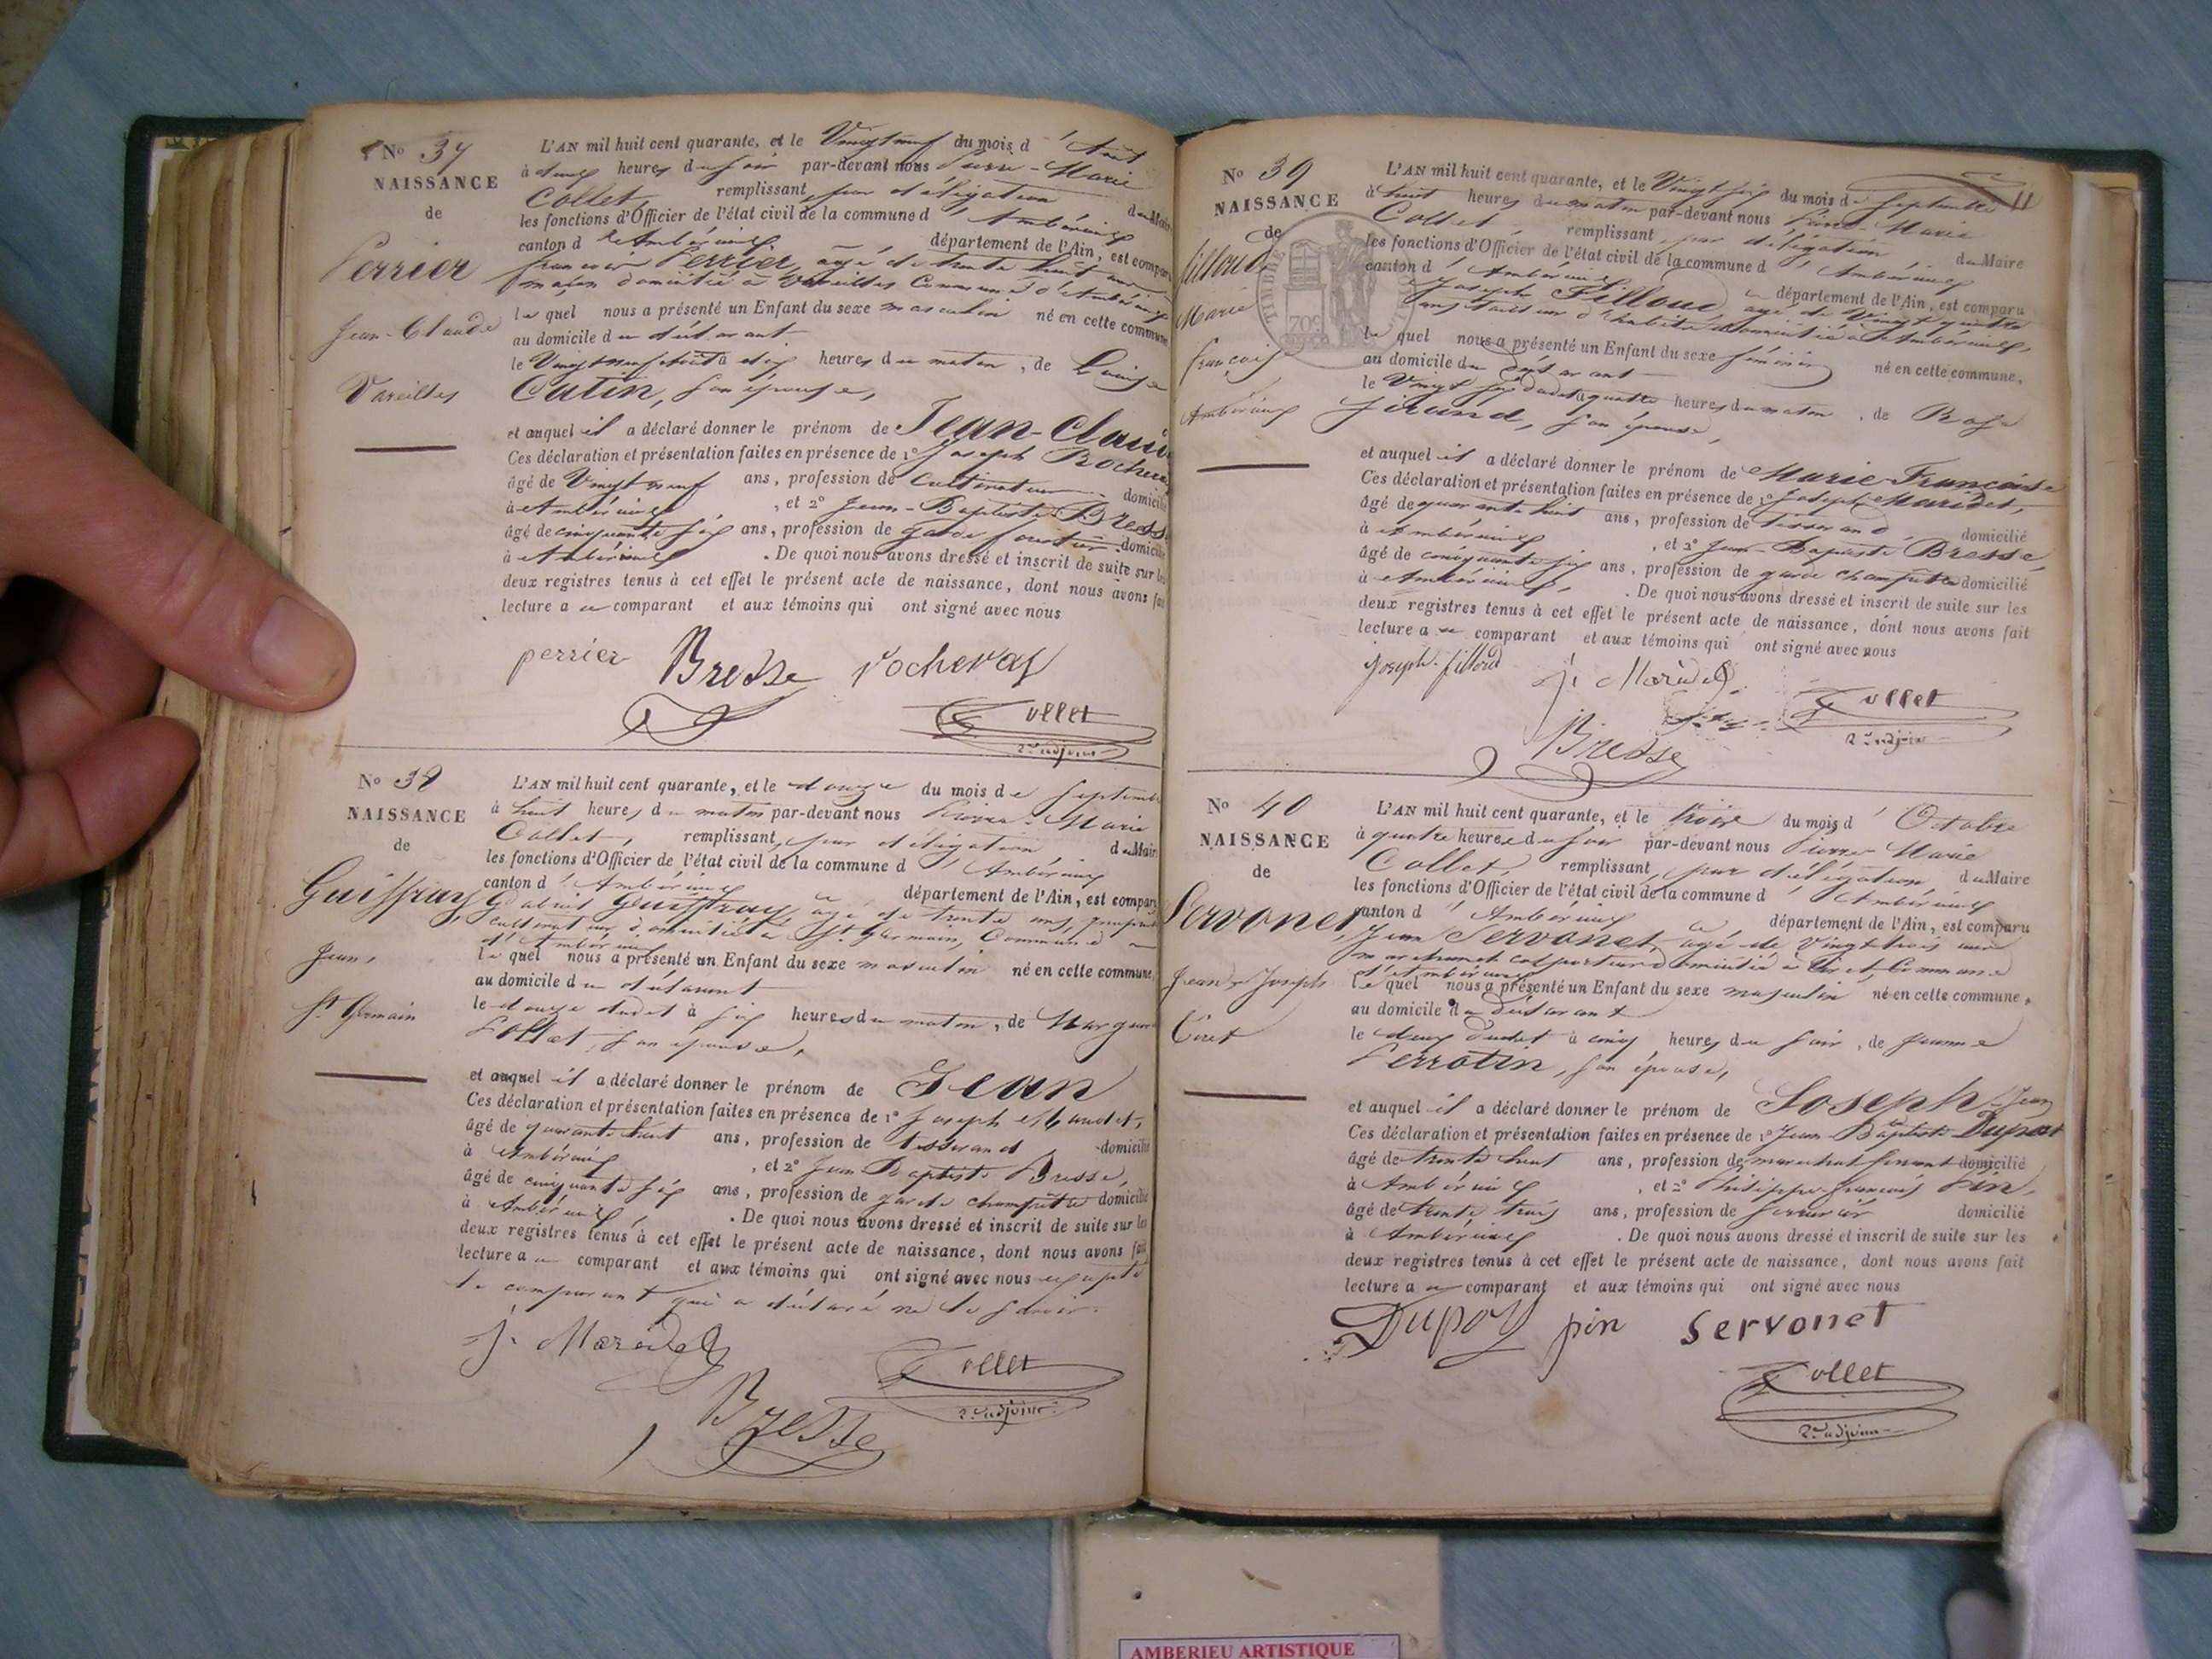 No 37
NAISSANCE
de
Perrier
Jean-Claude
Vareilles
L'AN mil huit cent quarante, et le Vingt neuf du mois d'Août
à deux heures du soir par-devant nous Pierre-Marie
Collet, remplissant, par délégation du Maire
les fonctions d'Officier de l'état civil de la commune d'Ambérieux
canton d'Ambérieux département de l'Ain, est comparu
françois Perrier, agé de trente huit ans
maçon domicilié à Vareilles Commune d'Ambérieux
le quel nous a présenté un Enfant du sexe masculin né en cette commune
au domicile du déclarant
le Vingt neuf août à dix heures du matin, de Louise
Cutin, son épouse,
et auquel il a déclaré donner le prénom de Jean-Claude
Ces déclaration et présentation faites en présence de 1º Joseph Rocheray
âgé de Vingt neuf ans, profession de Cultivateur domicilié
à Ambérieux, et 2º Jean-Baptiste Bresse
âgé de cinquante six ans, profession de garde forestier domicilié
à Ambérieux. De quoi nous avons dressé et inscrit de suite sur les
deux registres tenus à cet effet le présent acte de naissance, dont nous avons fait
lecture au comparant et aux témoins qui ont signé avec nous
perrier Bresse rocheray
Collet
2e adjoint
No 38
NAISSANCE
de
Guiffray
Jean,
St Germain
L'AN mil huit cent quarante, et le douze du mois de Septembre
à huit heures du matin par-devant nous Pierre-Marie
Collet, remplissant, par délégation du Maire
les fonctions d'Officier de l'état civil de la commune d'Ambérieux
canton d'Ambérieux département de l'Ain, est comparu
Gabriel Guiffray, agé de trente ans,
cultivateur domicilié à St Germain, Commune
d'Ambérieux
le quel nous a présenté un Enfant du sexe masculin né en cette commune,
au domicile du déclarant
le douze dudit à six heures du matin, de
Collet, son épouse,
et auquel il a déclaré donner le prénom de Jean
Ces déclaration et présentation faites en présence de 1º Joseph
âgé de quarante huit ans, profession de tisserand domicilié
à Ambérieux, et 2º Jean Baptiste Bresse,
âgé de cinquante six ans, profession de garde champêtre domicilié
à Ambérieux. De quoi nous avons dressé et inscrit de suite sur les
deux registres tenus à cet effet le présent acte de naissance, dont nous avons fait
lecture au comparant et aux témoins qui ont signé avec nous excepté
le comparant qui a déclaré ne le savoir.
J. Maridet
Bresse
Collet
2e adjoint
No 39
NAISSANCE
de
filloud
Marie
françoise
Ambérieux
TIMBRE
70c
L'AN mil huit cent quarante, et le Vingt six du mois de Septembre
à huit heures du matin par-devant nous Pierre-Marie
Collet remplissant, par délégation du Maire
les fonctions d'Officier de l'état civil de la commune d'Ambérieux
canton d'Ambérieux département de l'Ain, est comparu
Joseph Filloud agé de Vingt quatre
ans tailleur d'habits domicilié à Ambérieux,
le quel nous a présenté un Enfant du sexe féminin né en cette commune,
au domicile du déclarant
le Vingt six dudit à quatre heures du matin, de Rose
Girund, son épouse,
et auquel il a déclaré donner le prénom de Marie-Françoise
Ces déclaration et présentation faites en présence de 1º Joseph Maridet,
âgé de quarante huit ans, profession de tisserand domicilié
à Ambérieux, et 2º Jean-Baptiste Bresse,
âgé de cinquante six ans, profession de garde champêtre domicilié
à Ambérieux. De quoi nous avons dressé et inscrit de suite sur les
deux registres tenus à cet effet le présent acte de naissance, dont nous avons fait
lecture au comparant et aux témoins qui ont signé avec nous
Joseph filloud J. Maridet
Collet
2e adjoint
Bresse
No 40
NAISSANCE
de
Servonet,
Jean Joseph
Tiret
L'AN mil huit cent quarante, et le trois du mois d'Octobre
à quatre heures du soir par-devant nous Pierre Marie
Collet, remplissant, par délégation, du Maire
les fonctions d'Officier de l'état civil de la commune d'Ambérieux
canton d'Ambérieux département de l'Ain, est comparu
Jean Servonet, agé de Vingt trois ans
marchand colporteur domicilié à Tiret, Commune
d'Ambérieux
le quel nous a présenté un Enfant du sexe masculin né en cette commune,
au domicile du déclarant
le deux dudit à cinq heures du soir, de Jeanne
Perrotin, son épouse,
et auquel il a déclaré donner le prénom de Joseph Jean
Ces déclaration et présentation faites en présence de 1º Jean-Baptiste
âgé de trente huit ans, profession de marechal ferrant domicilié
à Ambérieux, et 2º Philippe françois Pin,
âgé de trente trois ans, profession de serrurier domicilié
à Ambérieux. De quoi nous avons dressé et inscrit de suite sur les
deux registres tenus à cet effet le présent acte de naissance, dont nous avons fait
lecture au comparant et aux témoins qui ont signé avec nous
pin servonet
Collet
2e adjoint
AMBERIEU ARTISTIQUE